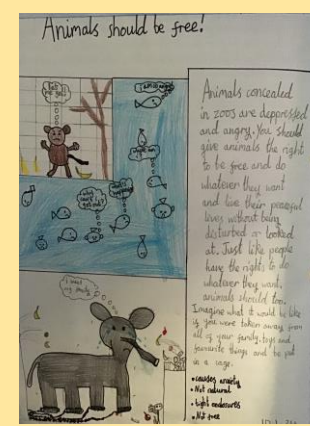 Animals should be free!
Let me go!!
I miss my family
Animals concealed
in zoos are deppressed
and angry. You should
give animals the right
to be free and do
whatever they want
and live their peaceful
lives without being
disturbed or looked
at. Just like people
have the rights to do
whatever they want,
animals should too.
Imagine what it would be like
if you were taken away from
all of your family, toys and
favourite things and be put
in a cage.
• causes anxiety
• Not natural
• tight enclosures
• Not free